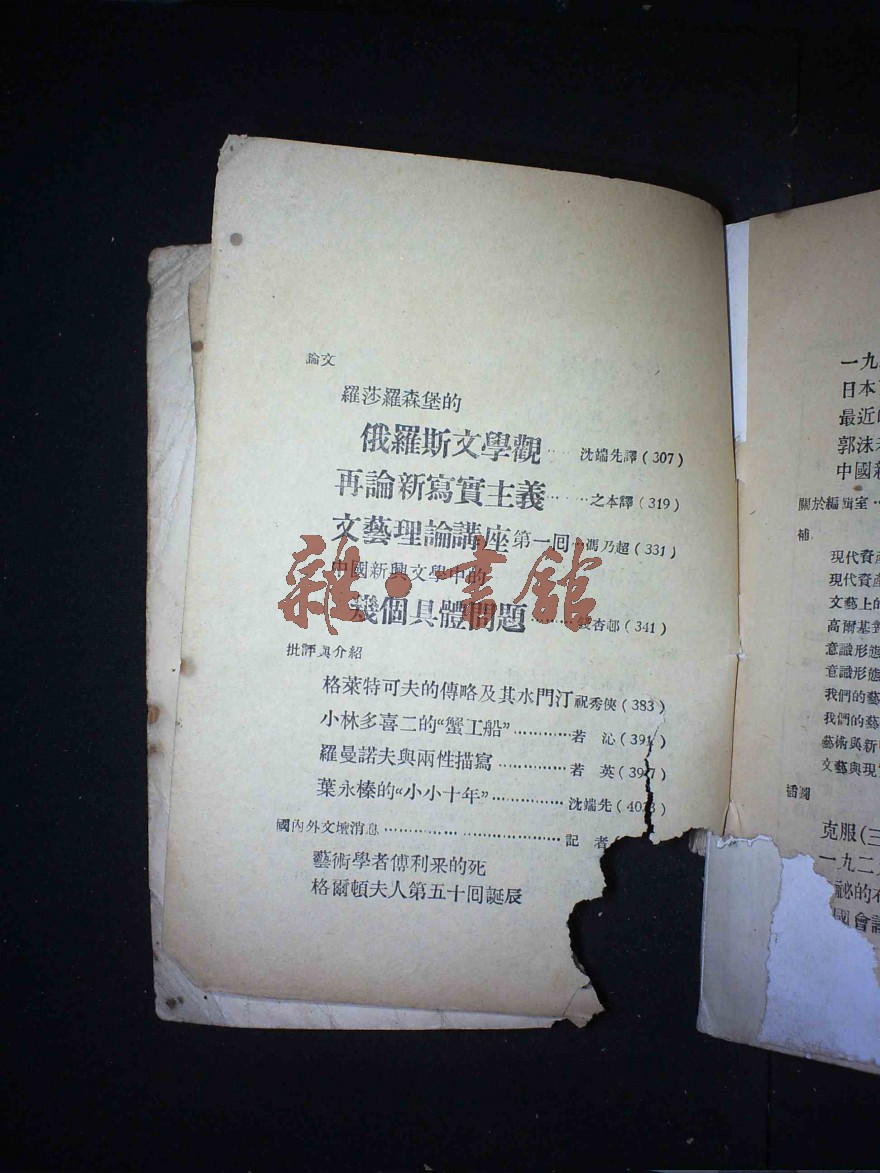 論文
羅莎羅森堡的
俄羅斯文學觀……沈端先譯(307)
再論新寫實主義………之本譯(319)
文藝理論講座第一回…馮乃超(331)
中國新興文學中的
幾個具體問題………錢杏邨(341)
批評與介紹
格萊特可夫的傳略及其水門汀 祝秀俠(383)
小林多喜二的“蟹工船”…………若 沁(391)
羅曼諾夫與兩性描寫……………若 英(397)
葉永榛的“小小十年”……………沈端先(403)
國內外文壇消息………………………………記 者(
藝術學者傅利采的死
格爾頓夫人第五十回誕辰
雜·書館
一九
日本
最近
郭沫
中國新
關於編輯室…
補
現代資產
現代資產
文藝上的
高爾基對
意識形態
意識形態
我們的藝
我們的藝
藝術與新
文藝與現實
插圖
克服(三
一九二
祕的
國會議